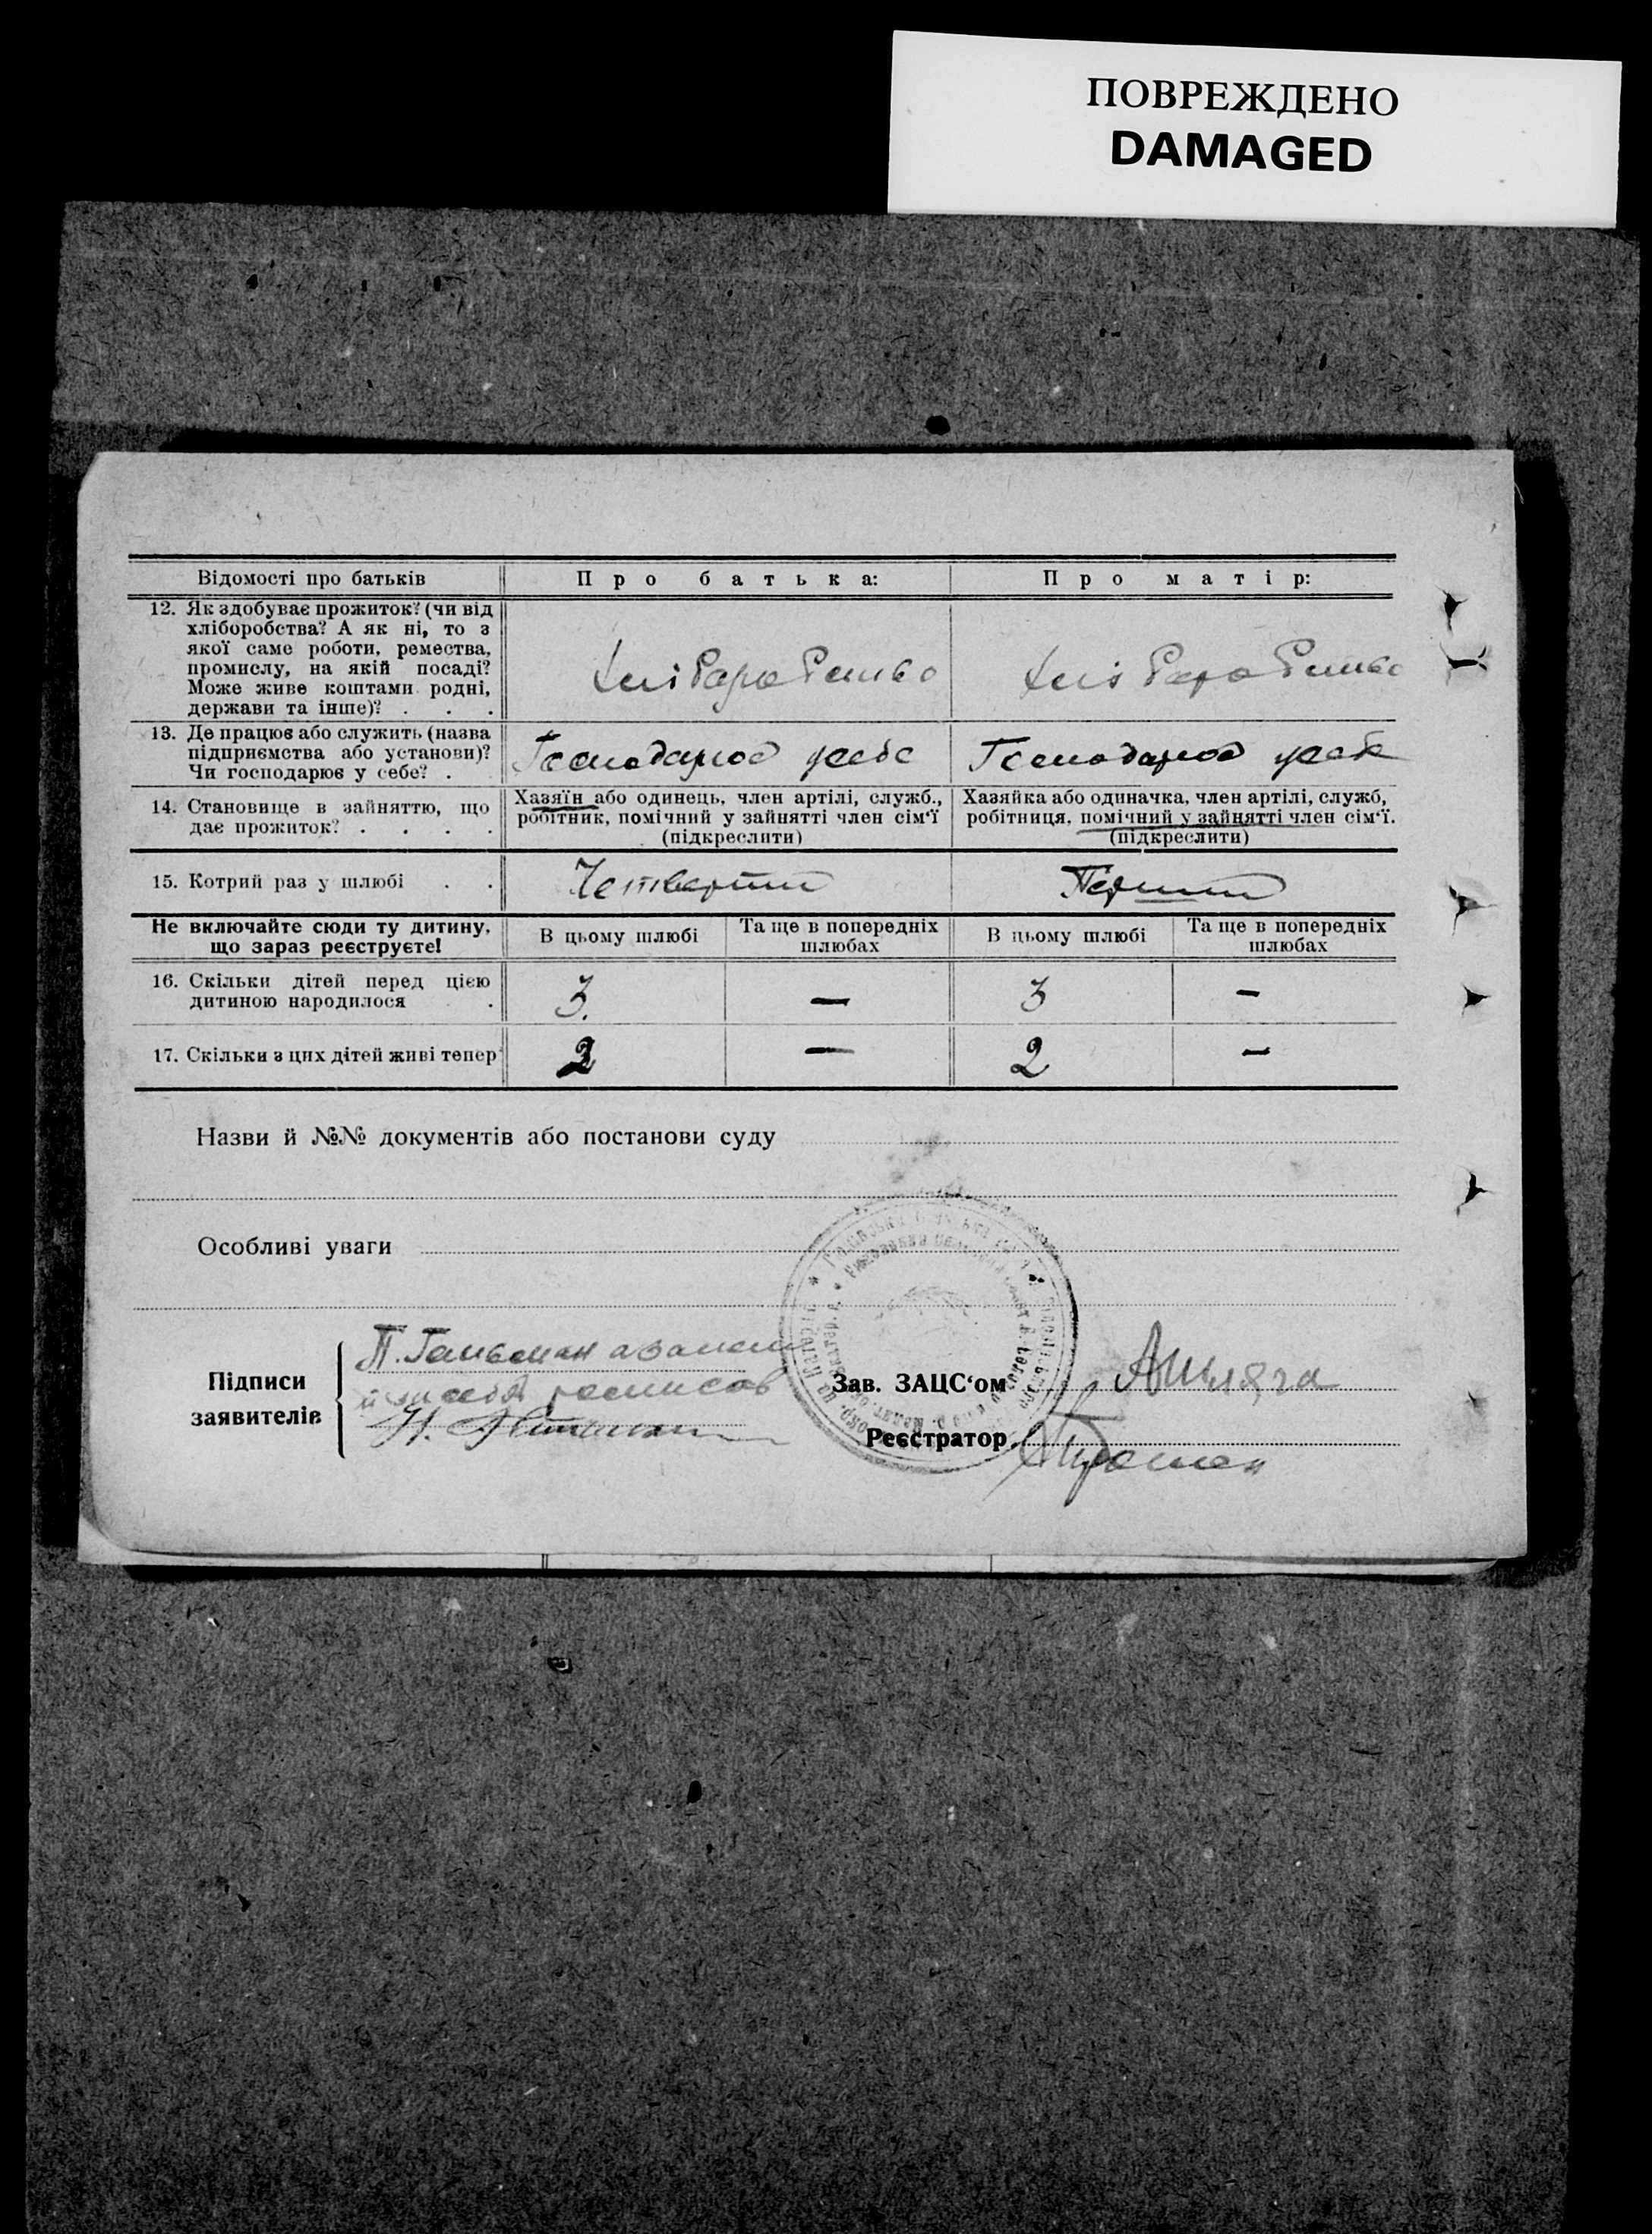 ПОВРЕЖДЕНО
DAMAGED
Відомості про батьків
Про батька:
Про матір:
12. Як здобуває прожиток? (чи від
хліборобства? А як ні, то з
якої саме роботи, ремества,
промислу, на якій посаді?
Може живе коштами родні,
держави та інше)? . . .
Хліборобство
Хліборобство
13. Де працює або служить (назва
підприємства або установи)?
Чи господарює у себе? .
Господарює у себе
Господарює у себе
14. Становище в зайняттю, що
дає прожиток? . . . .
Хазяїн або одинець, член артілі, служб.,
робітник, помічний у зайнятті член сім'ї
(підкреслити)
Хазяйка або одиначка, член артілі, служб,
робітниця, помічний у зайнятті член сім'ї.
(підкреслити)
15. Котрий раз у шлюбі . .
Четвертий
Перший
Не включайте сюди ту дитину,
що зараз реєструєте!
В цьому шлюбі
Та ще в попередніх
шлюбах
В цьому шлюбі
Та ще в попередніх
шлюбах
16. Скільки дітей перед цією
дитиною народилося .
3. — 3 —
17. Скільки з цих дітей живі тепер
2 — 2 —
Назви й №№ документів або постанови суду
Особливі уваги
Підписи
заявителів
П. Гальман
Зав. ЗАЦС'ом
Реєстратор